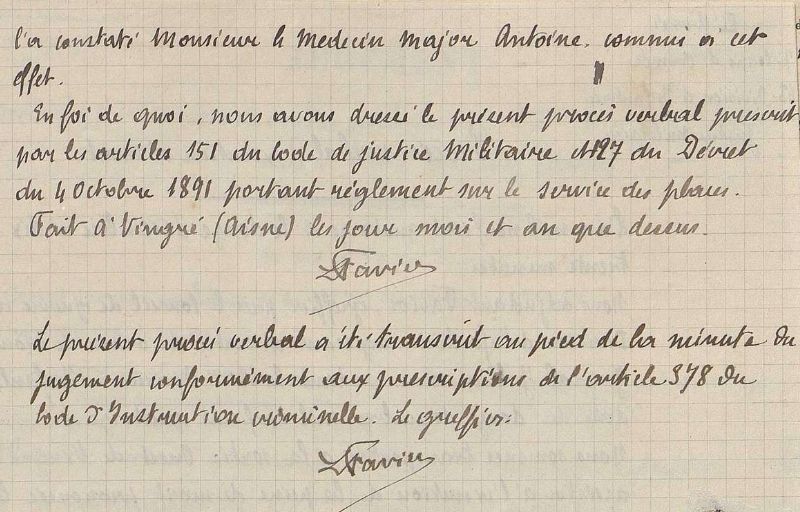 l'a constaté Monsieur le Medecin Major Antoine, commis a cet
effet.
En foi de quoi, nous avons dressé le présent procès verbal prescrit
par les articles 151 du Code de justice Militaire et 127 du Décret
du 4 Octobre 1891 portant règlement sur le service des places.
Fait à Vingré (Aisne) les jour mois et an que dessus.
Favier
Le présent procès verbal a été transcrit au pied de la minute du
jugement conformément aux prescriptions de l'article 378 du
Code d'Instruction criminelle. Le greffier.
Favier